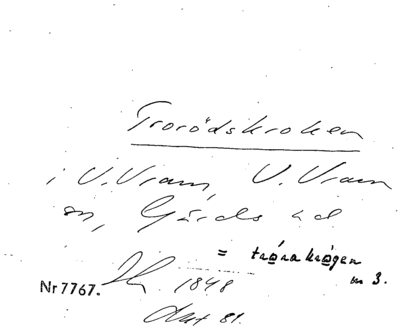 Trorödskroken
i V. Vram, V. Vram
sn, Gärds hd
= tråra krogen
m 3.
Nr 7767. 1848
Akt 81.